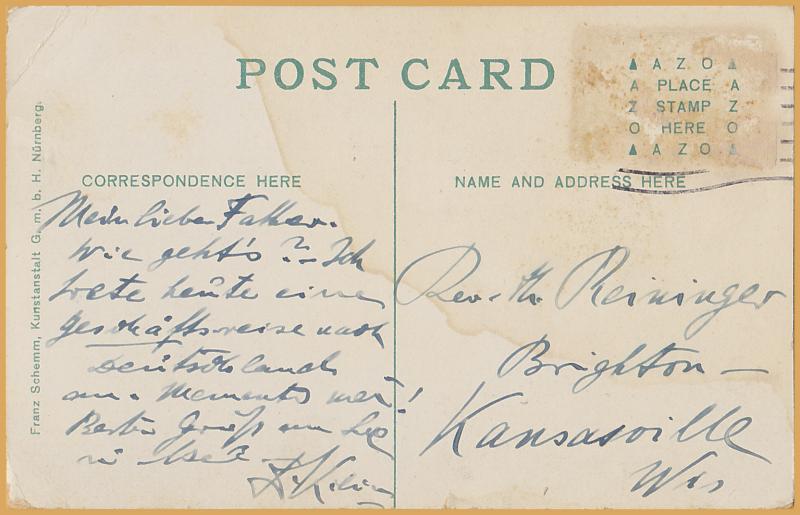 POST CARD
▲ A Z O ▲
A PLACE A
Z STAMP Z
O HERE O
▲ A Z O ▲
CORRESPONDENCE HERE
NAME AND ADDRESS HERE
Franz Schemm, Kunstanstalt G. m. b. H. Nürnberg.
Mein lieber Father.
Wie geht's? - Ich
trete heute eine
Geschäftsreise nach
Deutschland
an. Memento mei!
Beste Grüß
Rev. Th. Reininger
Brighton —
Kansasville
Wis